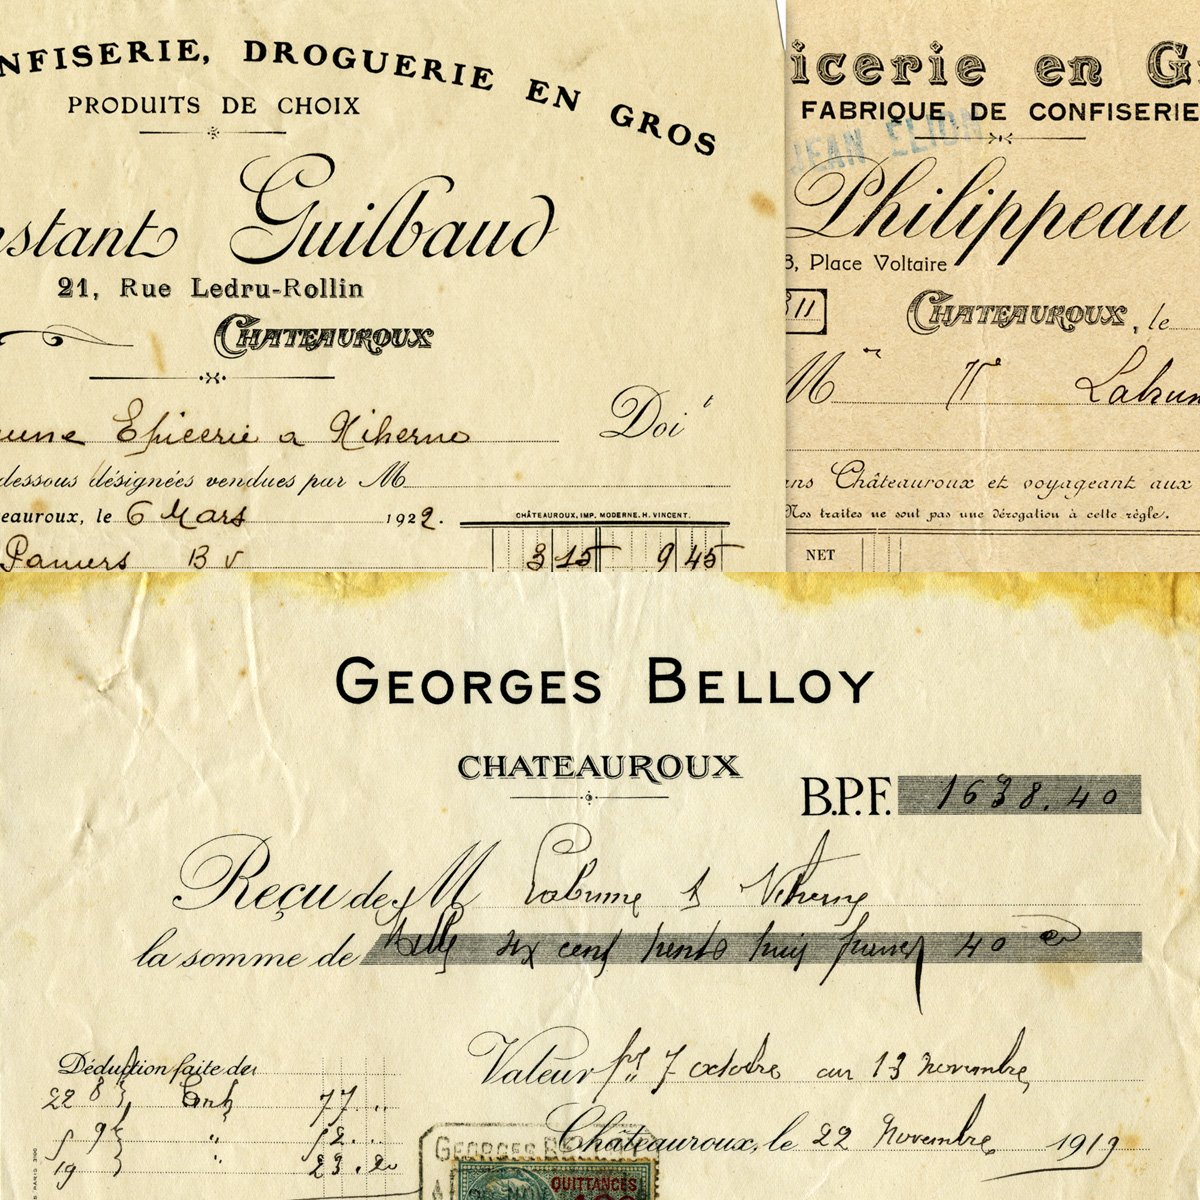 NFISERIE, DROGUERIE EN GROS
PRODUITS DE CHOIX
nstant Guilbaud
21, Rue Ledru-Rollin
CHATEAUROUX
Doit
Epicerie a
dessous désignées vendues par M
eauroux, le 6 Mars 1922.
CHÂTEAUROUX, IMP. MODERNE. H. VINCENT.
B V 3 15 9 45
icerie en G
FABRIQUE DE CONFISERIE
JEAN ELION
Philippeau
8, Place Voltaire
311
CHATEAUROUX, le
M Labrun
ans Châteauroux et voyageant aux
Nos traites ne sont pas une dérogation à cette règle.
NET
GEORGES BELLOY
CHATEAUROUX
B.P.F. 1638.40
Reçu de M Labrune à
la somme de Mille six cent trente huit francs 40 ce
Valeur 7 octobre au 13 novembre
Déduction faite de:
22 8 77 ..
5 9 " 52 ...
19 " 23.20
Châteauroux, le 22 Novembre 1919
GEORGES BELLOY
QUITTANCES